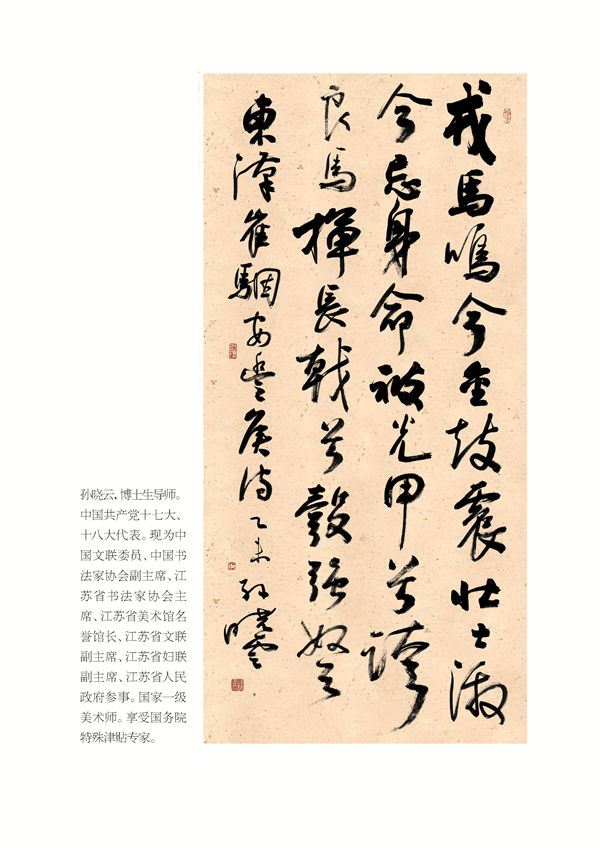 戎馬鳴兮金鼓震壯士激
兮忘身命被光甲兮跨
良馬揮長戟兮彀强弩
東漢崔駰安豐侯詩乙未孫曉雲
孙晓云,博士生导师。
中国共产党十七大、
十八大代表。现为中
国文联委员、中国书
法家协会副主席、江
苏省书法家协会主
席、江苏省美术馆名
誉馆长、江苏省文联
副主席、江苏省妇联
副主席、江苏省人民
政府参事。国家一级
美术师。享受国务院
特殊津贴专家。